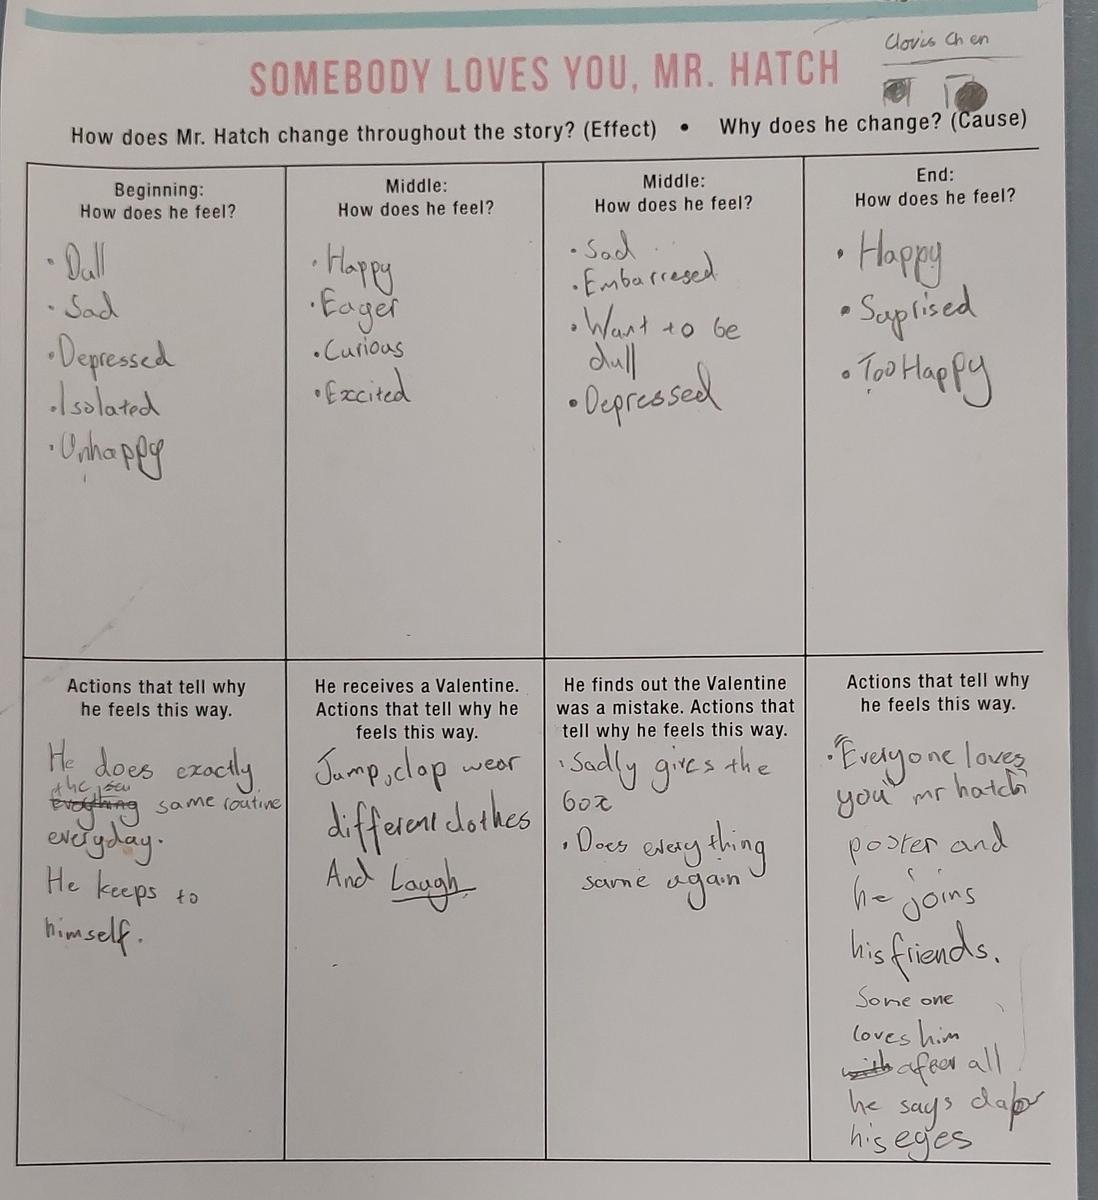 Clovis Chen
SOMEBODY LOVES YOU, MR. HATCH
How does Mr. Hatch change throughout the story? (Effect) • Why does he change? (Cause)
Beginning:
How does he feel?
• Dull
• Sad
• Depressed
• Isolated
• Unhappy
Middle:
How does he feel?
• Happy
• Eager
• Curious
• Excited
Middle:
How does he feel?
• Sad
• Embarresed
• Want to be
dull
• Depressed
End:
How does he feel?
• Happy
• Saprised
• Too Happy
Actions that tell why
he feels this way.
He does exactly
the
same routine
everyday.
He keeps to
himself.
He receives a Valentine.
Actions that tell why he
feels this way.
Jump, clap wear
different clothes
And Laugh
He finds out the Valentine
was a mistake. Actions that
tell why he feels this way.
• Sadly gives the
box
• Does everything
same again
Actions that tell why
he feels this way.
• "Everyone loves
you mr hatch"
poster and
he joins
his friends.
Some one
loves him
after all
he says
his eyes